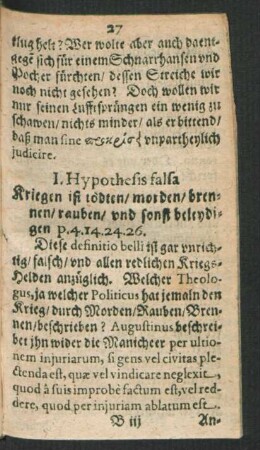 27
klug helt? Wer wolte aber auch daent-
gegẽ sich für einem Schnarrhansen vnd
Pocher fürchten/ dessen Streiche wir
noch nicht gesehen? Doch wollen wir
nur seinen Lufftsprüngen ein wenig zu
schawen/ nichts minder/ als er bittend/
daß man sine vnpartheylich
judicire.
I. Hypothesis falsa
Kriegen ist tödten/ morden/ bren-
nen/ rauben/ vnd sonst beleydi-
gen p.4.14.24.26.
Diese definitio belli ist gar vnrich-
tig/ falsch/ vnd allen redlichen Kriegs-
Helden anzüglich. Welcher Theolo-
gus, ja welcher Politicus hat jemaln den
Krieg/ durch Morden/ Rauben/ Bren-
nen/ beschrieben? Augustinus beschrei-
bet ihn wider die Manicheer per ultio-
nem injuriarum, si gens vel civitas ple-
ctenda est, quæ vel vindicare neglexit,
quod à suis improbè factum est, vel red-
dere, quod per injuriam ablatum est.
B iij An-